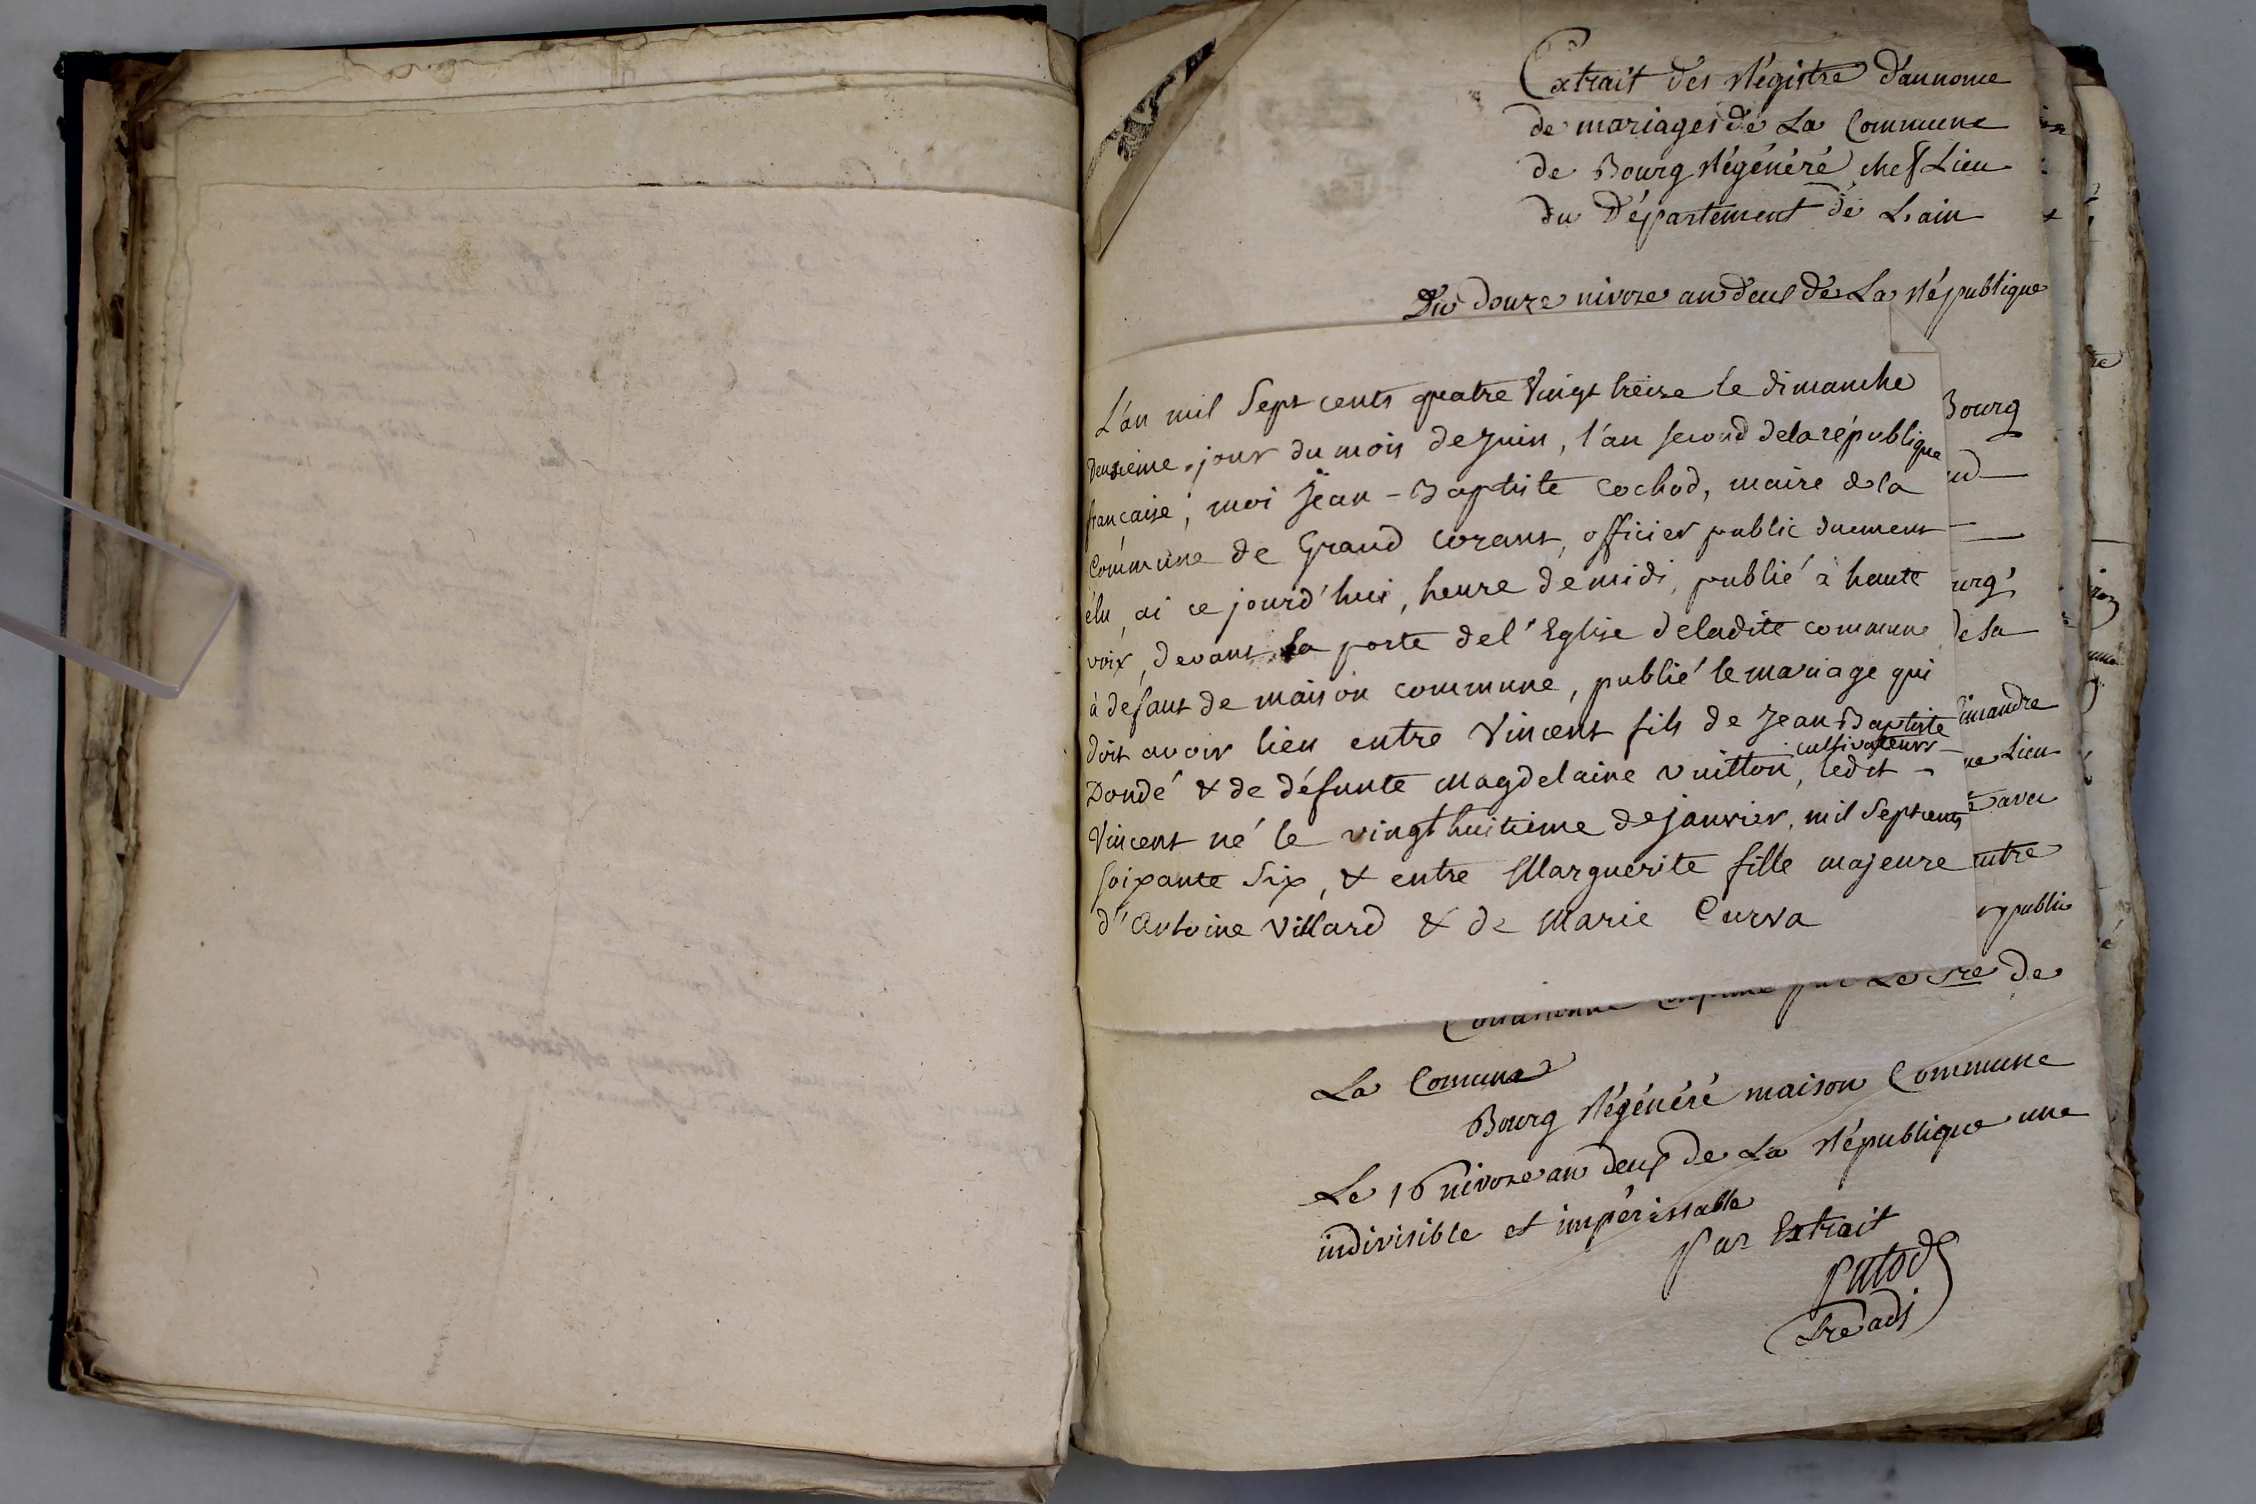 Extrait des Régistre d'annonce
de mariages de La Commune
de Bourg Régénéré chef Lieu
du Département de L'ain
Du douze nivoze an deux de La République
L'an mil Sept cents quatre Vingt treize le dimanche
deuxième jour du mois de Juin, l'an second de la république
française, moi Jean-Baptiste Cochod, maire de la
Commune de Grand Corent, officier public duement
élu, ai ce jourd'hui, heure de midi, publié à haute
voix, devant la porte de l'Eglise de ladite commune
à defaut de maison commune, publié le mariage qui
doit avoir lieu entre Vincent fils de Jean Baptiste
cultivateurs
Dondé & de défunte Magdelaine Vuitton, ledit
Vincent né le vingt huitième de janvier, mil Septcents
soixante Six, & entre Marguerite fille majeure
d'Antoine Villard & de Marie Curva
Bourg
urg
de sa
ne Lieu
avec
entre
public
par Le Sre de
La Comune
Bourg Régénéré maison Commune
Le 16 nivoze an deux de La République une
indivisible et impérissable
par Extrait
Sre adj